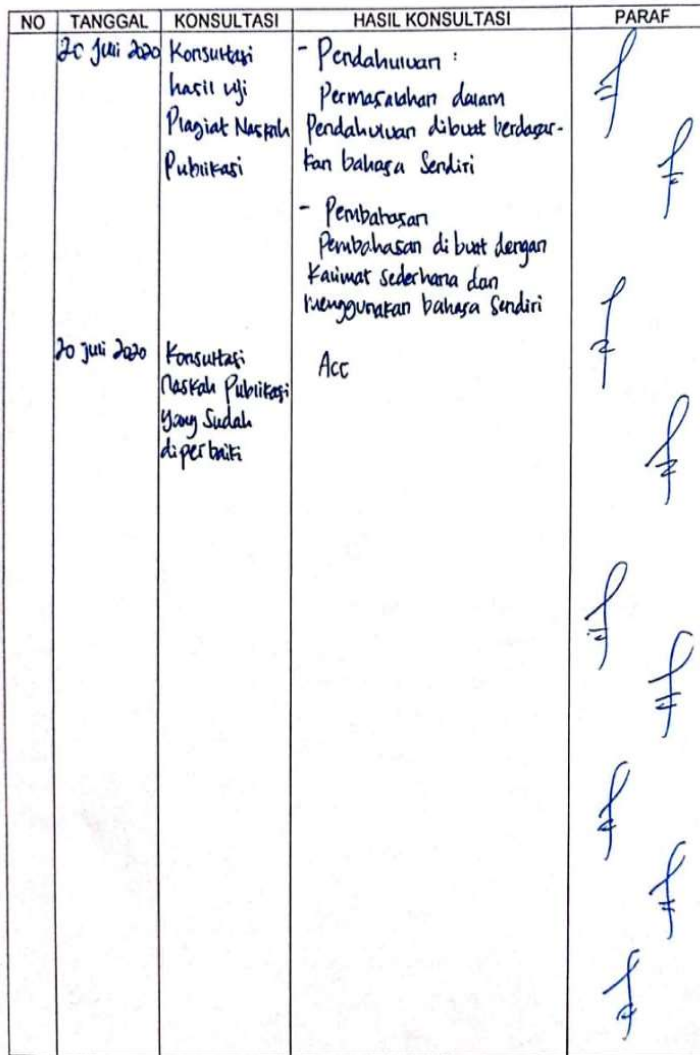 NO TANGGAL KONSULTASI HASIL KONSULTASI PARAF
20 Juli 2020
Konsultasi
hasil uji
Plagiat Naskah
Publikasi
- Pendahuluan :
Permasalahan dalam
Pendahuluan dibuat berdasar-
kan bahasa Sendiri
- Pembahasan
Pembahasan di buat dengan
Kalimat Sederhana dan
menggunakan bahasa Sendiri
20 juli 2020
Konsultasi
Naskah Publikasi
yang Sudah
diperbaiki
Acc